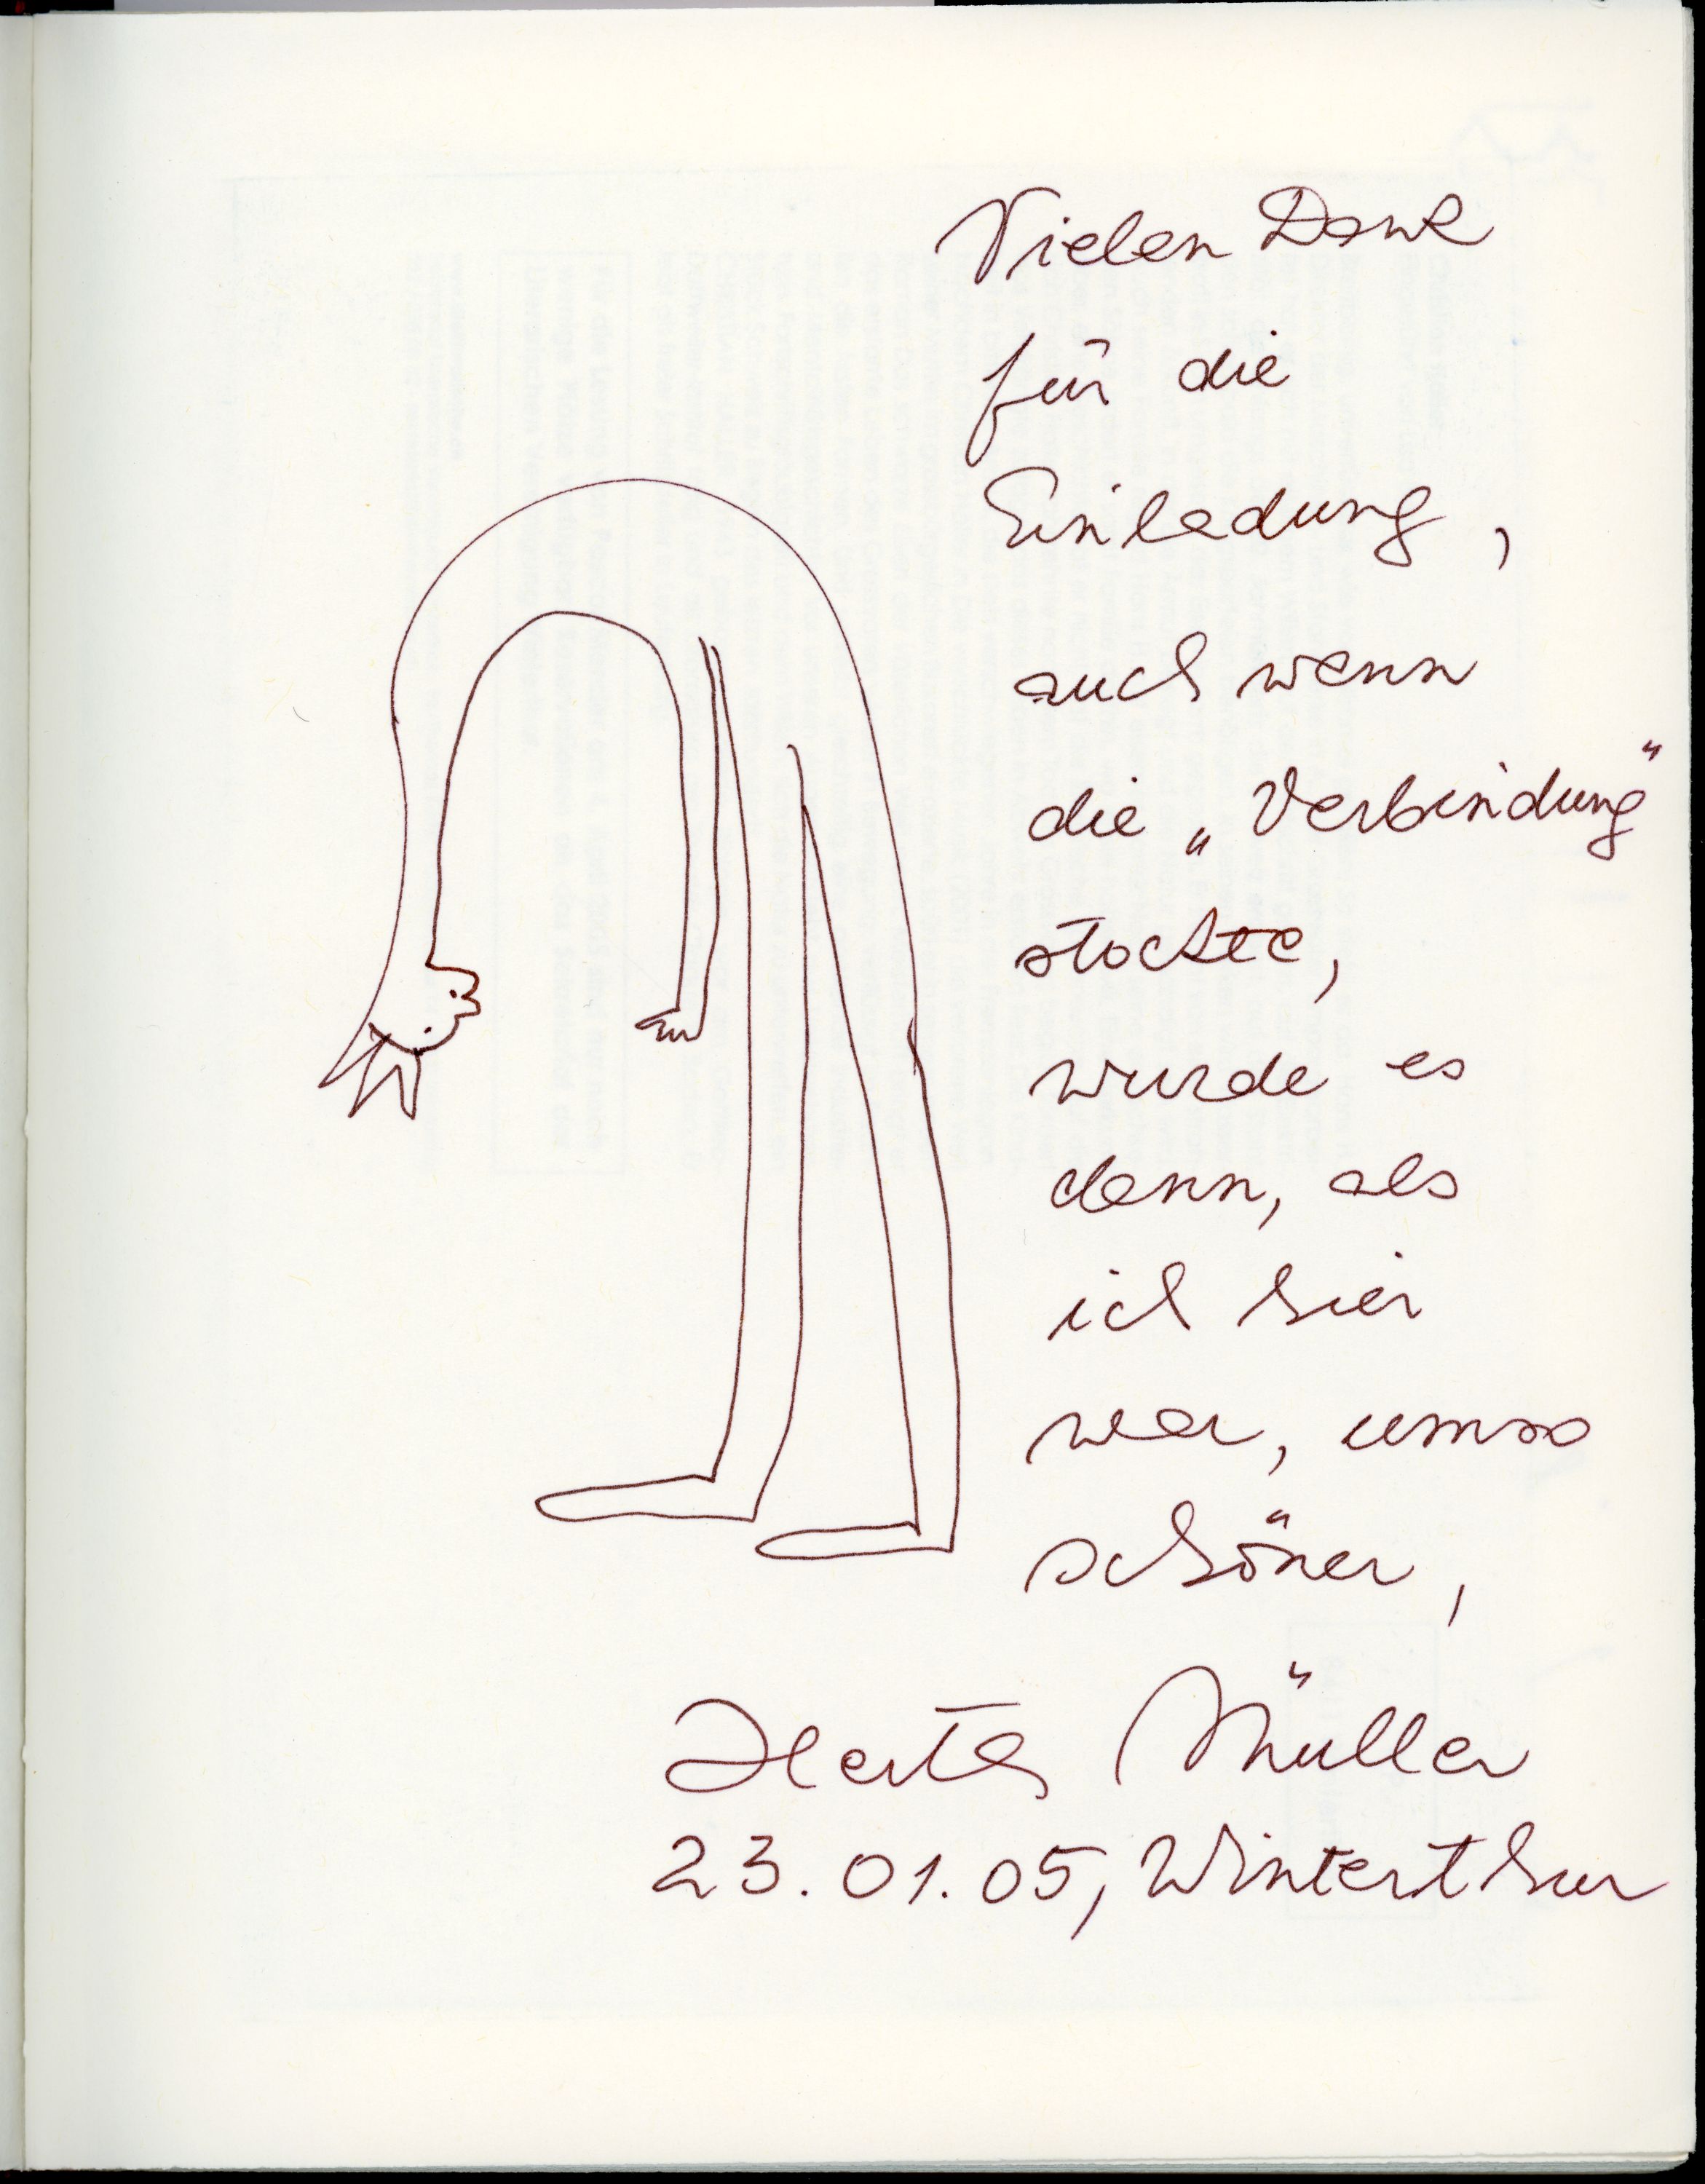 Vielen Dank
für die
Einladung,
auch wenn
die „Verbindung"
stockte,
wurde es
dann, als
ich hier
war, umso
schöner,
Herta Müller
23.01.05, Winterthur